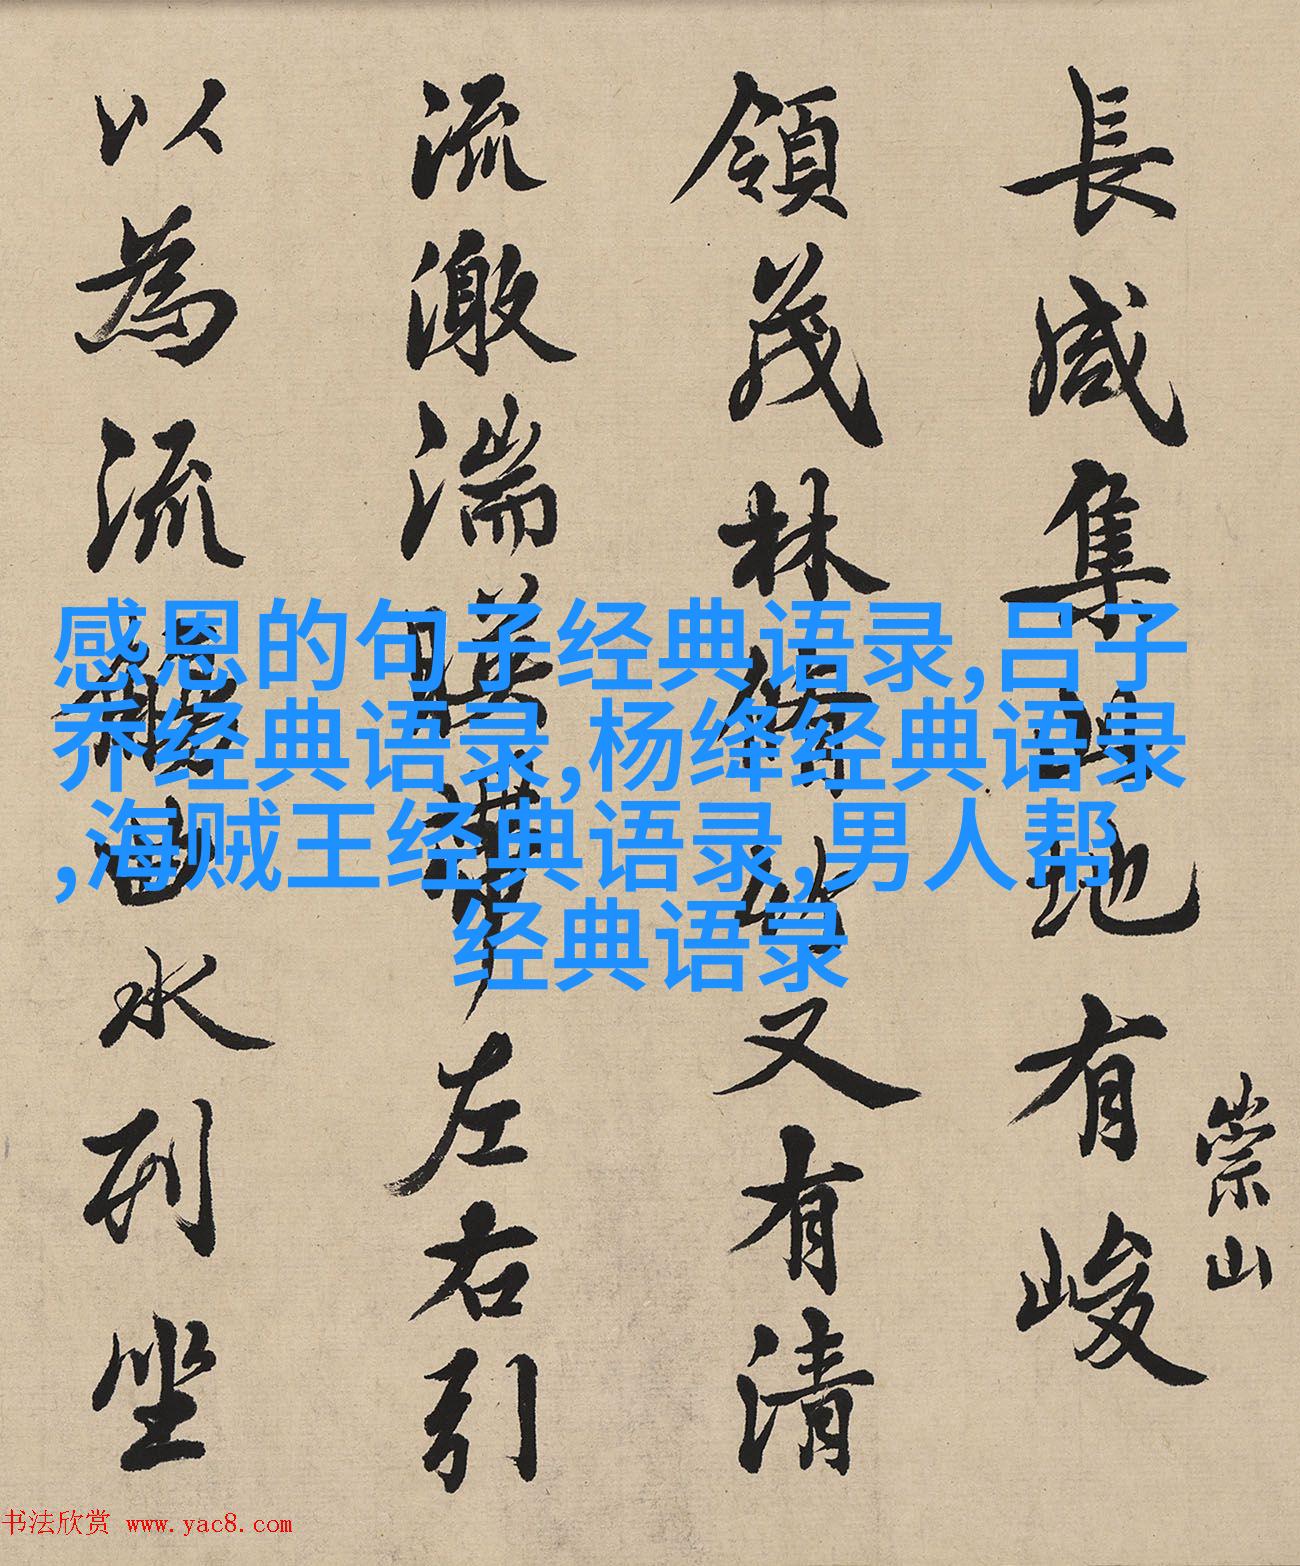 崇山
長咸集此地有峻
領茂林脩竹又有清
流激湍暎帶左右引
以為流觴曲水列坐
感恩的句子经典语录,吕子
乔经典语录,杨绛经典语录
,海贼王经典语录,男人帮
经典语录
书法欣赏 www.yac8.com